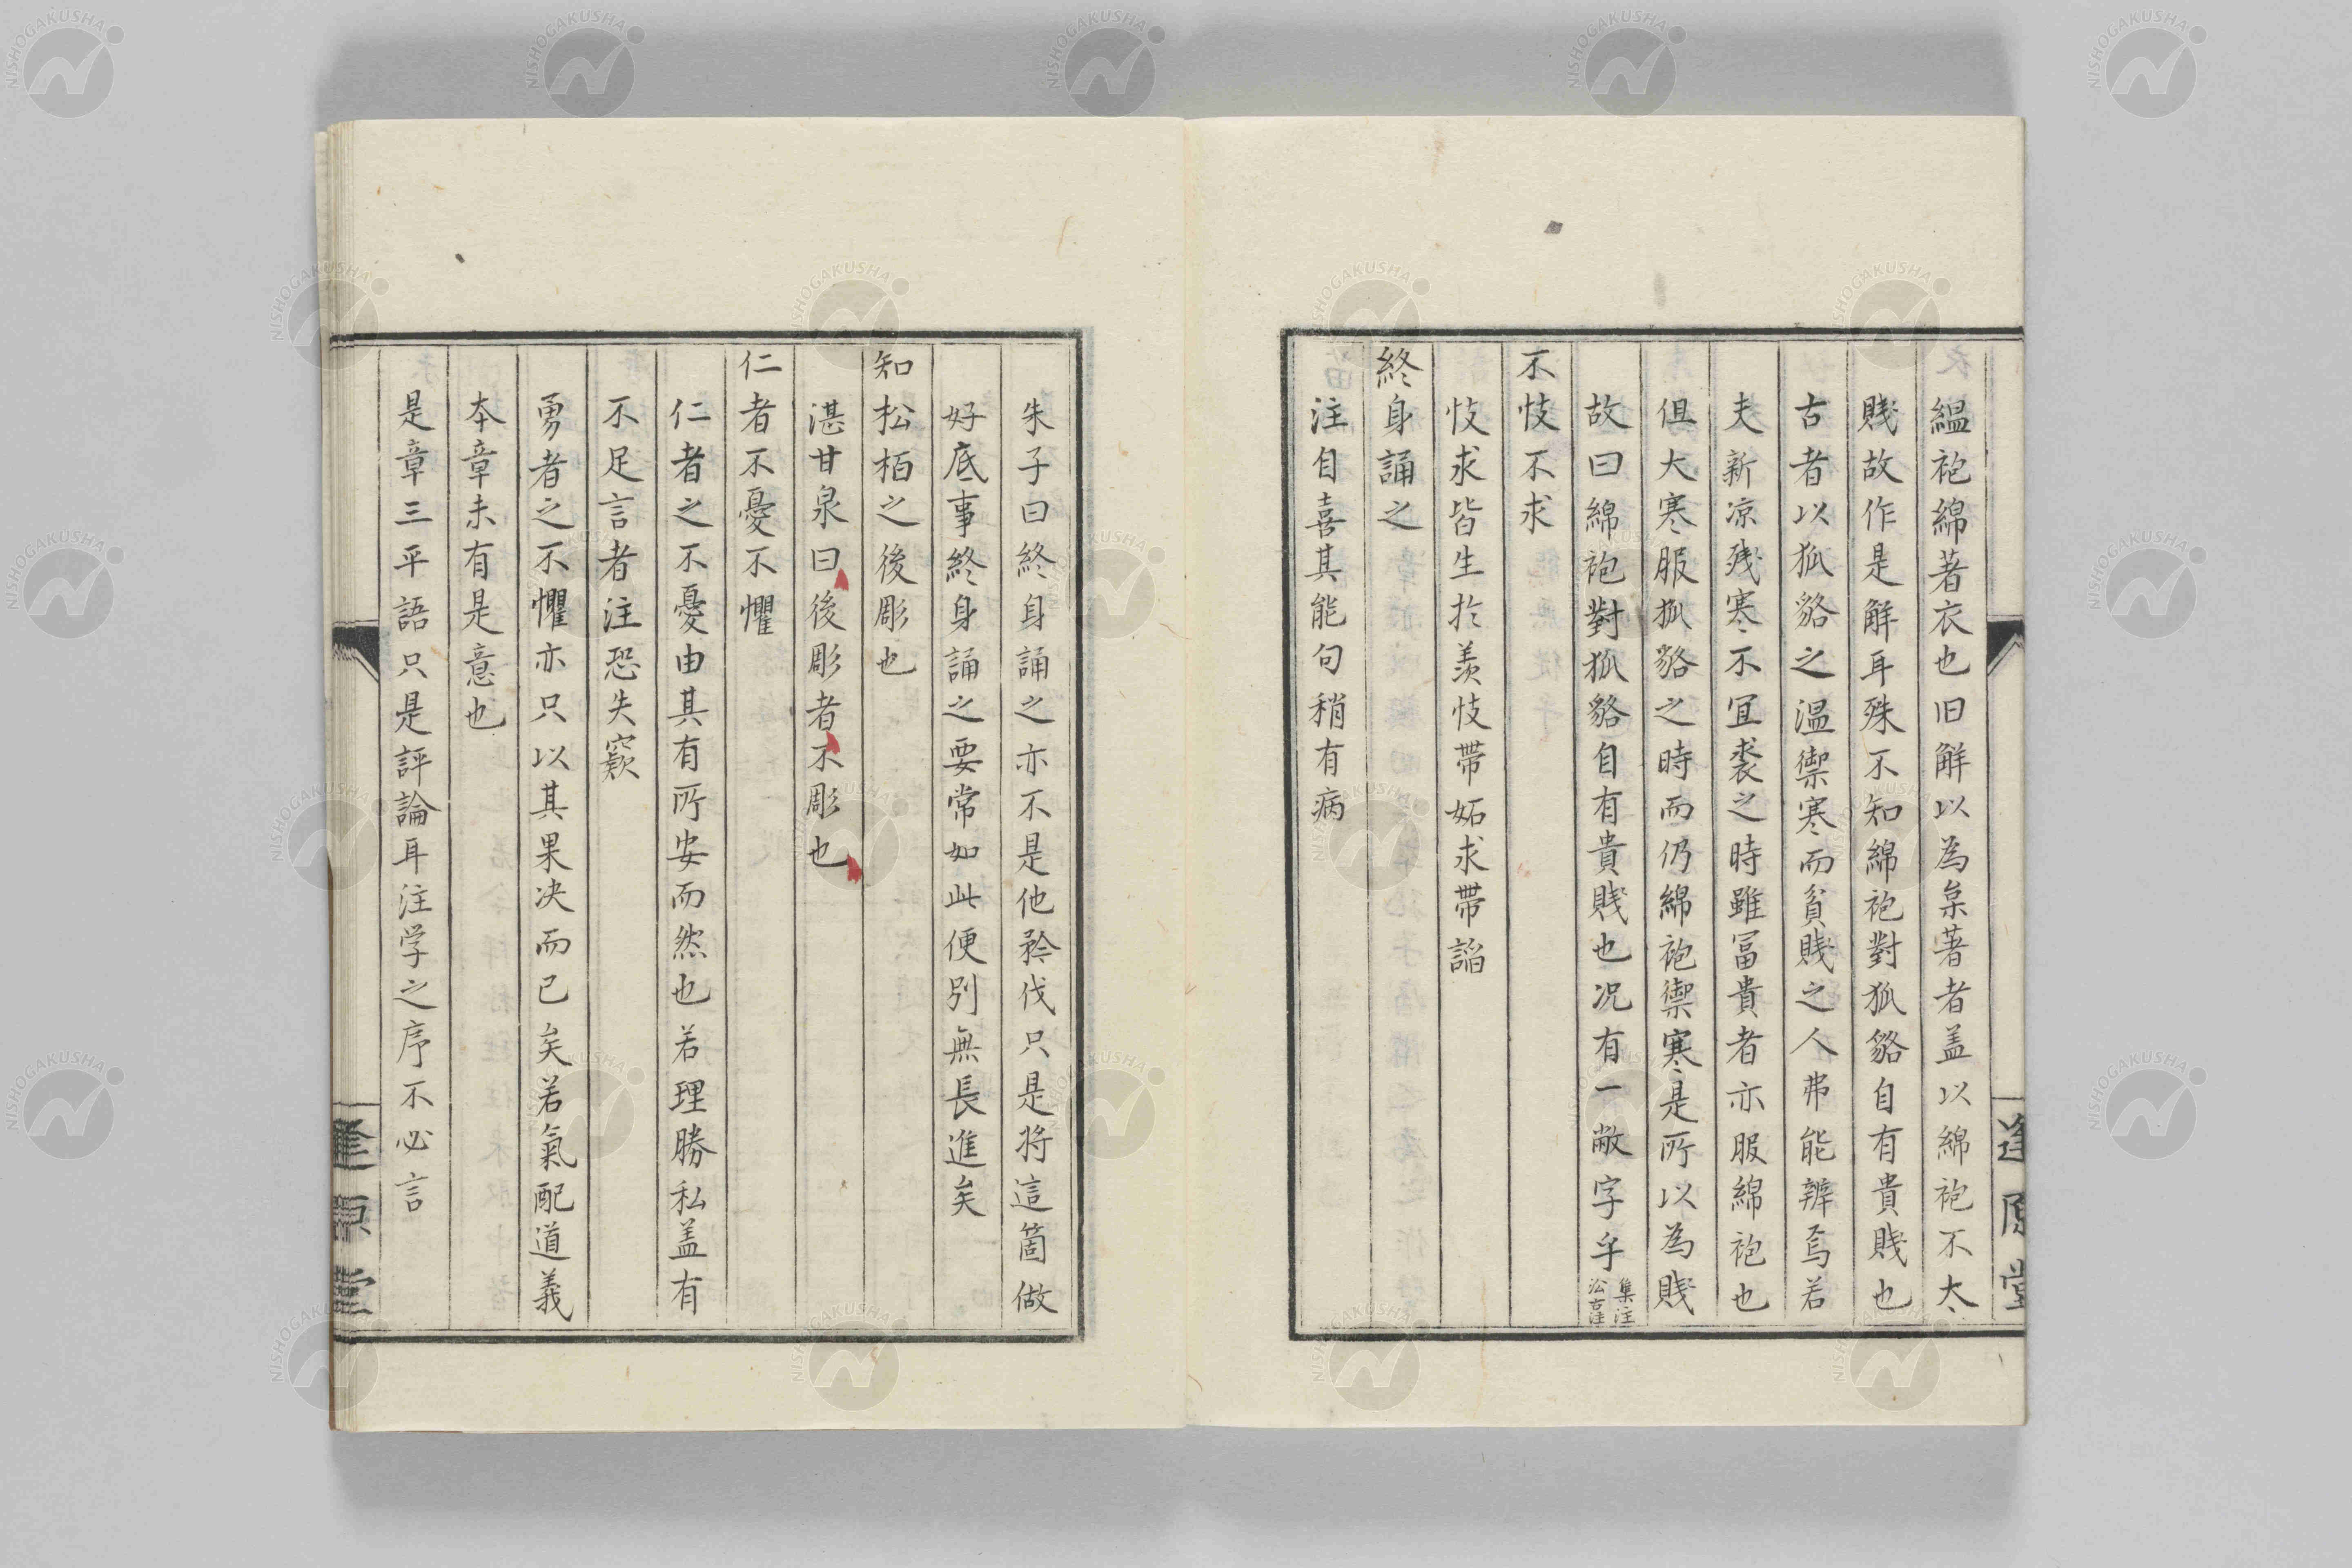 縕袍綿著衣也旧解以為枲著者盖以綿袍不太
賤故作是解耳殊不知綿袍對狐貉自有貴賤也
古者以狐貉之温禦寒而貧賤之人弗能辨焉若
夫新凉残寒不宜裘之時雖冨貴者亦服綿袍也
但大寒服狐貉之時而仍綿袍禦寒是所以為賤
故曰綿袍對狐貉自有貴賤也况有一敝字乎
集注
不忮不求
忮求皆生於羨忮帶妬求帶諂
終身誦之
注自喜其能句稍有病
逢原堂
朱子曰終身誦之亦不是他矜伐只是将這箇做
好底事終身誦之要常如此便別無長進矣
知松栢之後彫也
湛甘泉曰後彫者不彫也
仁者不憂不懼
仁者之不憂由其有所安而然也若理勝私盖有
不足言者注恐失窾
勇者之不懼亦只以其果决而已矣若氣配道義
本章未有是意也
是章三平語只是評論耳注学之序不必言
逢原堂
NISHOGAKUSHA